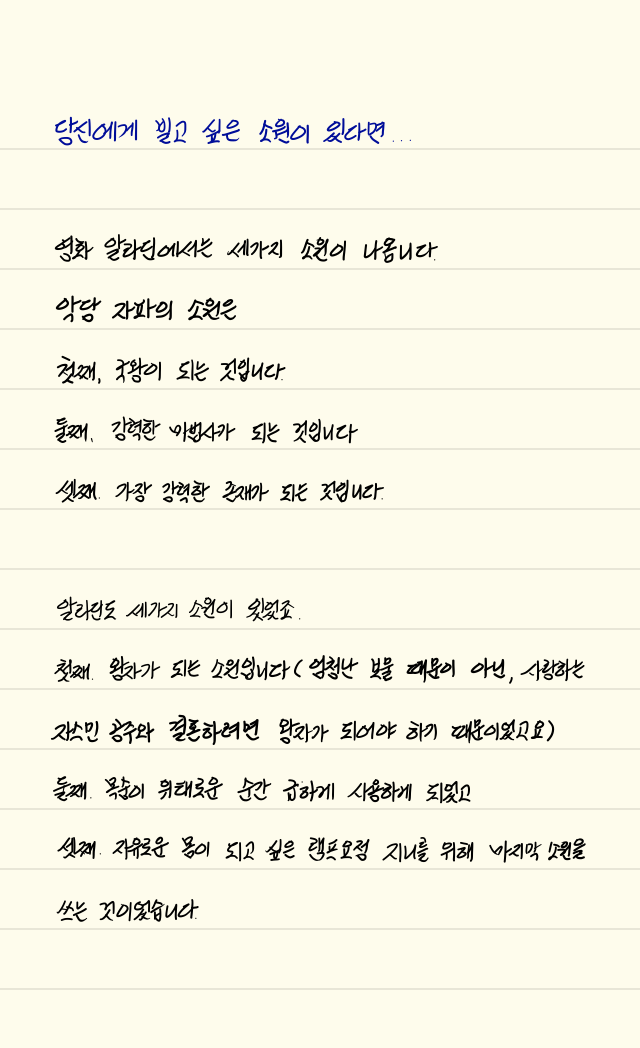 당신에게 빌고 싶은 소원이 있다면...
영화 알라딘에서는 세가지 소원이 나옵니다.
악당 자파의 소원은
첫째, 국왕이 되는 것입니다.
둘째, 강력한 마법사가 되는 것입니다
셋째. 가장 강력한 존재가 되는 것입니다.
알라딘도 세가지 소원이 있었죠.
첫째. 왕자가 되는 소원입니다(엄청난 보물 때문이 아닌, 사랑하는
자스민 공주와 결혼하려면 왕자가 되어야 하기 때문이었고요)
둘째. 목숨이 위태로운 순간 급하게 사용하게 되었고
셋째. 자유로운 몸이 되고 싶은 램프요정 지니를 위해 마지막 소원을
쓰는 것이었습니다.